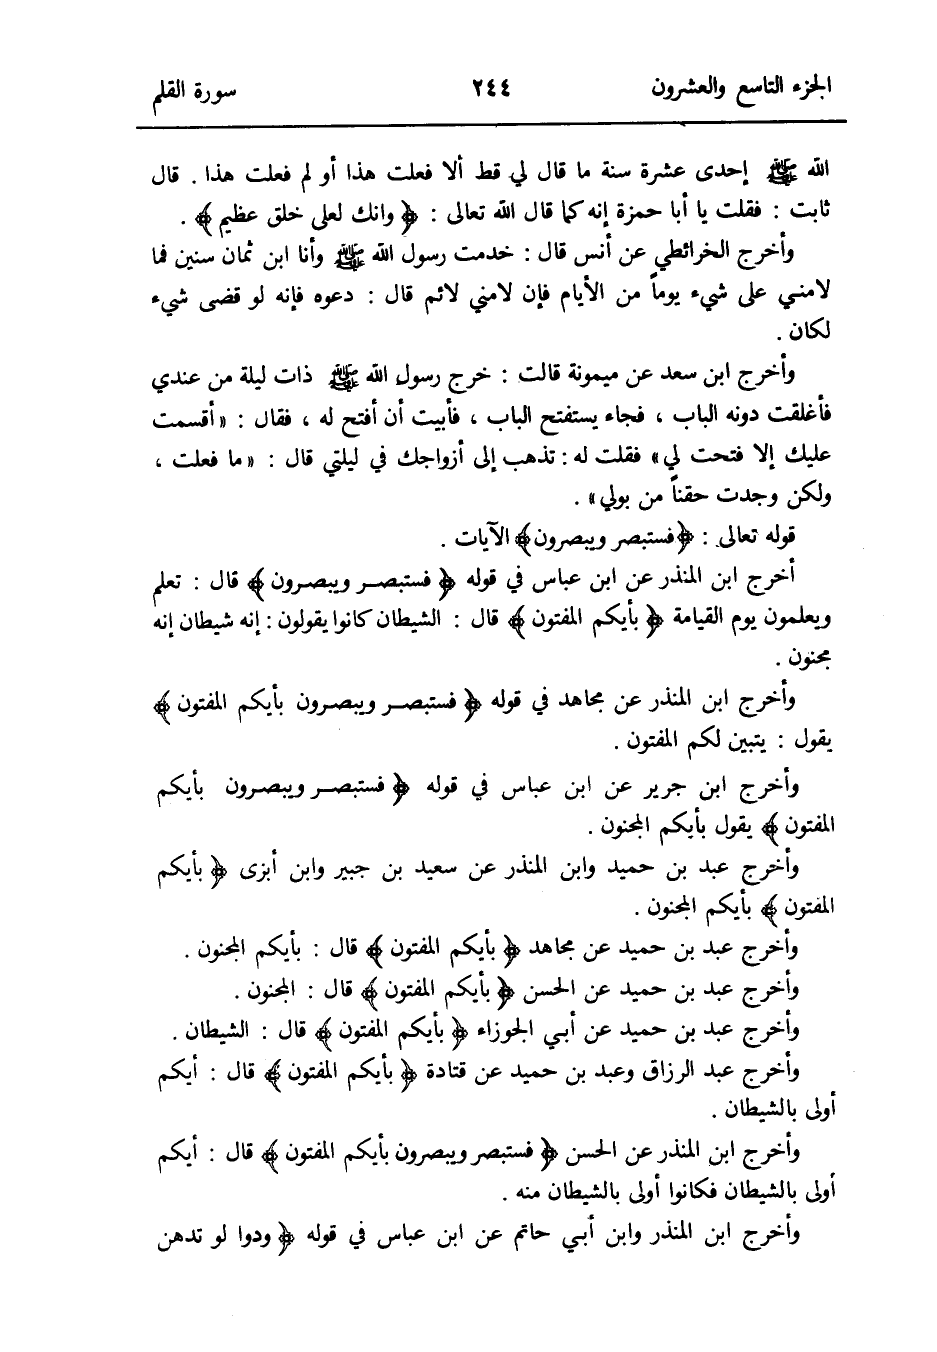 الجزء التاسع والعشرون ٢٤٤ سورة القلم
الله ﷺ إحدى عشرة سنة ما قال لي قط ألا فعلت هذا أو لم فعلت هذا . قال
ثابت : فقلت يا أبا حمزة إنه كما قال الله تعالى : ﴿ وانك لعلى خلق عظيم ﴾ .
وأخرج الخرائطي عن أنس قال : خدمت رسول الله ﷺ وأنا ابن ثمان سنين فما
لامني على شيء يوماً من الأيام فإن لامني لائم قال : دعوه فإنه لو قضى شيء
لكان .
وأخرج ابن سعد عن ميمونة قالت : خرج رسول الله ﷺ ذات ليلة من عندي
فأغلقت دونه الباب ، فجاء يستفتح الباب ، فأبيت أن أفتح له ، فقال : « أقسمت
عليك إلا فتحت لي » فقلت له : تذهب إلى أزواجك في ليلتي قال : « ما فعلت ،
ولكن وجدت حقناً من بولي » .
قوله تعالى : ﴿ فستبصر ويبصرون ﴾ الآيات .
أخرج ابن المنذر عن ابن عباس في قوله ﴿ فستبصر ويبصرون ﴾ قال : تعلم
ويعلمون يوم القيامة ﴿ بأيكم المفتون ﴾ قال : الشيطان كانوا يقولون : إنه شيطان إنه
مجنون .
وأخرج ابن المنذر عن مجاهد في قوله ﴿ فستبصر ويبصرون بأيكم المفتون ﴾
يقول : يتبين لكم المفتون .
وأخرج ابن جرير عن ابن عباس في قوله ﴿ فستبصر ويبصرون بأيكم
المفتون ﴾ يقول بأيكم المجنون .
وأخرج عبد بن حميد وابن المنذر عن سعيد بن جبير وابن أبزى ﴿ بأيكم
المفتون ﴾ بأيكم المجنون .
وأخرج عبد بن حميد عن مجاهد ﴿ بأيكم المفتون ﴾ قال : بأيكم المجنون .
وأخرج عبد بن حميد عن الحسن ﴿ بأيكم المفتون ﴾ قال : المجنون .
وأخرج عبد بن حميد عن أبي الجوزاء ﴿ بأيكم المفتون ﴾ قال : الشيطان .
وأخرج عبد الرزاق وعبد بن حميد عن قتادة ﴿ بأيكم المفتون ﴾ قال : أيكم
أولى بالشيطان .
وأخرج ابن المنذر عن الحسن ﴿ فستبصر ويبصرون بأيكم المفتون ﴾ قال : أيكم
أولى بالشيطان فكانوا أولى بالشيطان منه .
وأخرج ابن المنذر وابن أبي حاتم عن ابن عباس في قوله ﴿ ودوا لو تدهن